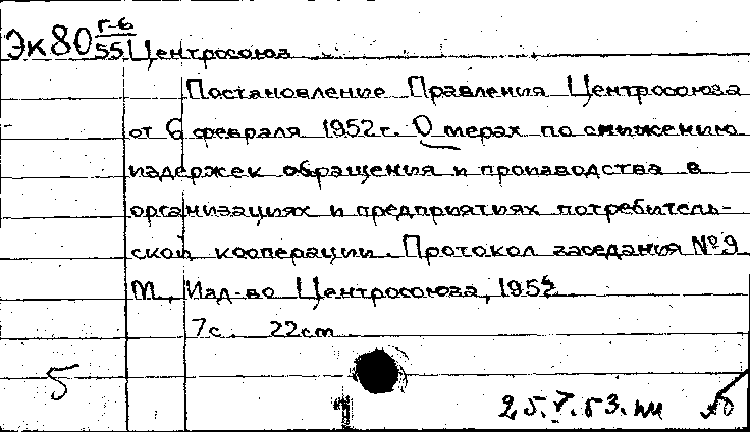 Эк80 г-6/551 Центросоюз
Постановление Правления Центросоюза
от 6 февраля 1952г. О мерах по снижению
издержек обращения и производства в
организациях и предприятиях потребитель-
ской кооперации. Протокол заседания №9
М., Изд-во Центросоюза, 1952
7с. 22см
5
25.V.53.